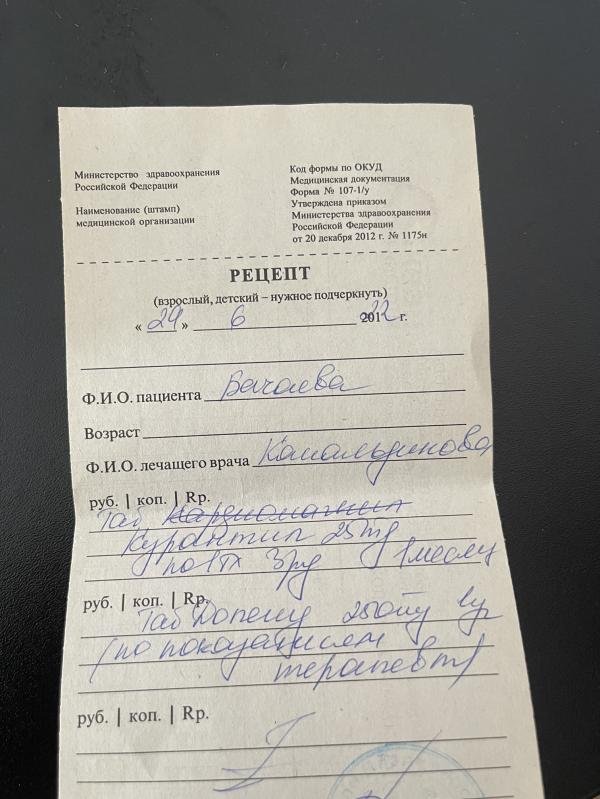 Министерство здравоохранения
Российской Федерации
Наименование (штамп)
медицинской организации
Код формы по ОКУД
Медицинская документация
Форма № 107-1/у
Утверждена приказом
Министерства здравоохранения
Российской Федерации
от 20 декабря 2012 г. № 1175н
РЕЦЕПТ
(взрослый, детский – нужное подчеркнуть)
« 29 » 6 2022 г.
Ф.И.О. пациента
Возраст
Ф.И.О. лечащего врача Камальдинова
руб. | коп. | Rp.
Таб Кардиомагнил
Курантил 25mg
по 1т х 3рд 1 месяц
руб. | коп. | Rp.
Таб 250mg
(по показаниям
терапевта)
руб. | коп. | Rp.